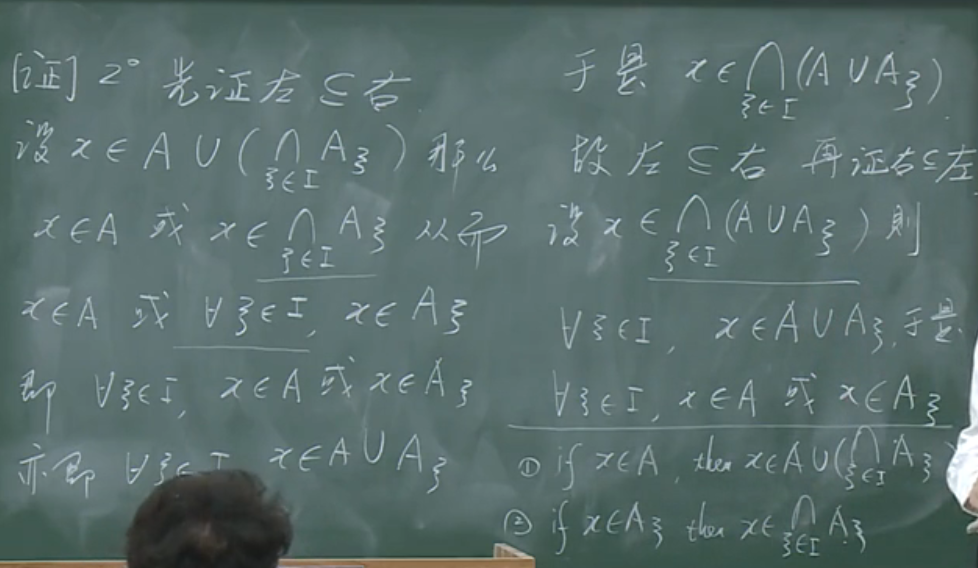 [证] 2° 先证左 ⊆ 右
设 x ∈ A ∪ (⋂_{ξ∈I} A_ξ) 那么
x∈A 或 x∈ ⋂_{ξ∈I} A_ξ 从而
x∈A 或 ∀ξ∈I, x∈A_ξ
即 ∀ξ∈I, x∈A 或 x∈A_ξ
亦即 ∀ξ∈I x∈A∪A_ξ
于是 x∈ ⋂_{ξ∈I} (A∪A_ξ).
故左 ⊆ 右 再证右⊆左
设 x∈ ⋂_{ξ∈I} (A∪A_ξ) 则
∀ξ∈I, x∈A∪A_ξ, 于是
∀ξ∈I, x∈A 或 x∈A_ξ
① if x∈A, then x∈A∪(⋂_{ξ∈I} A_ξ)
② if x∈A_ξ then x∈ ⋂_{ξ∈I} A_ξ